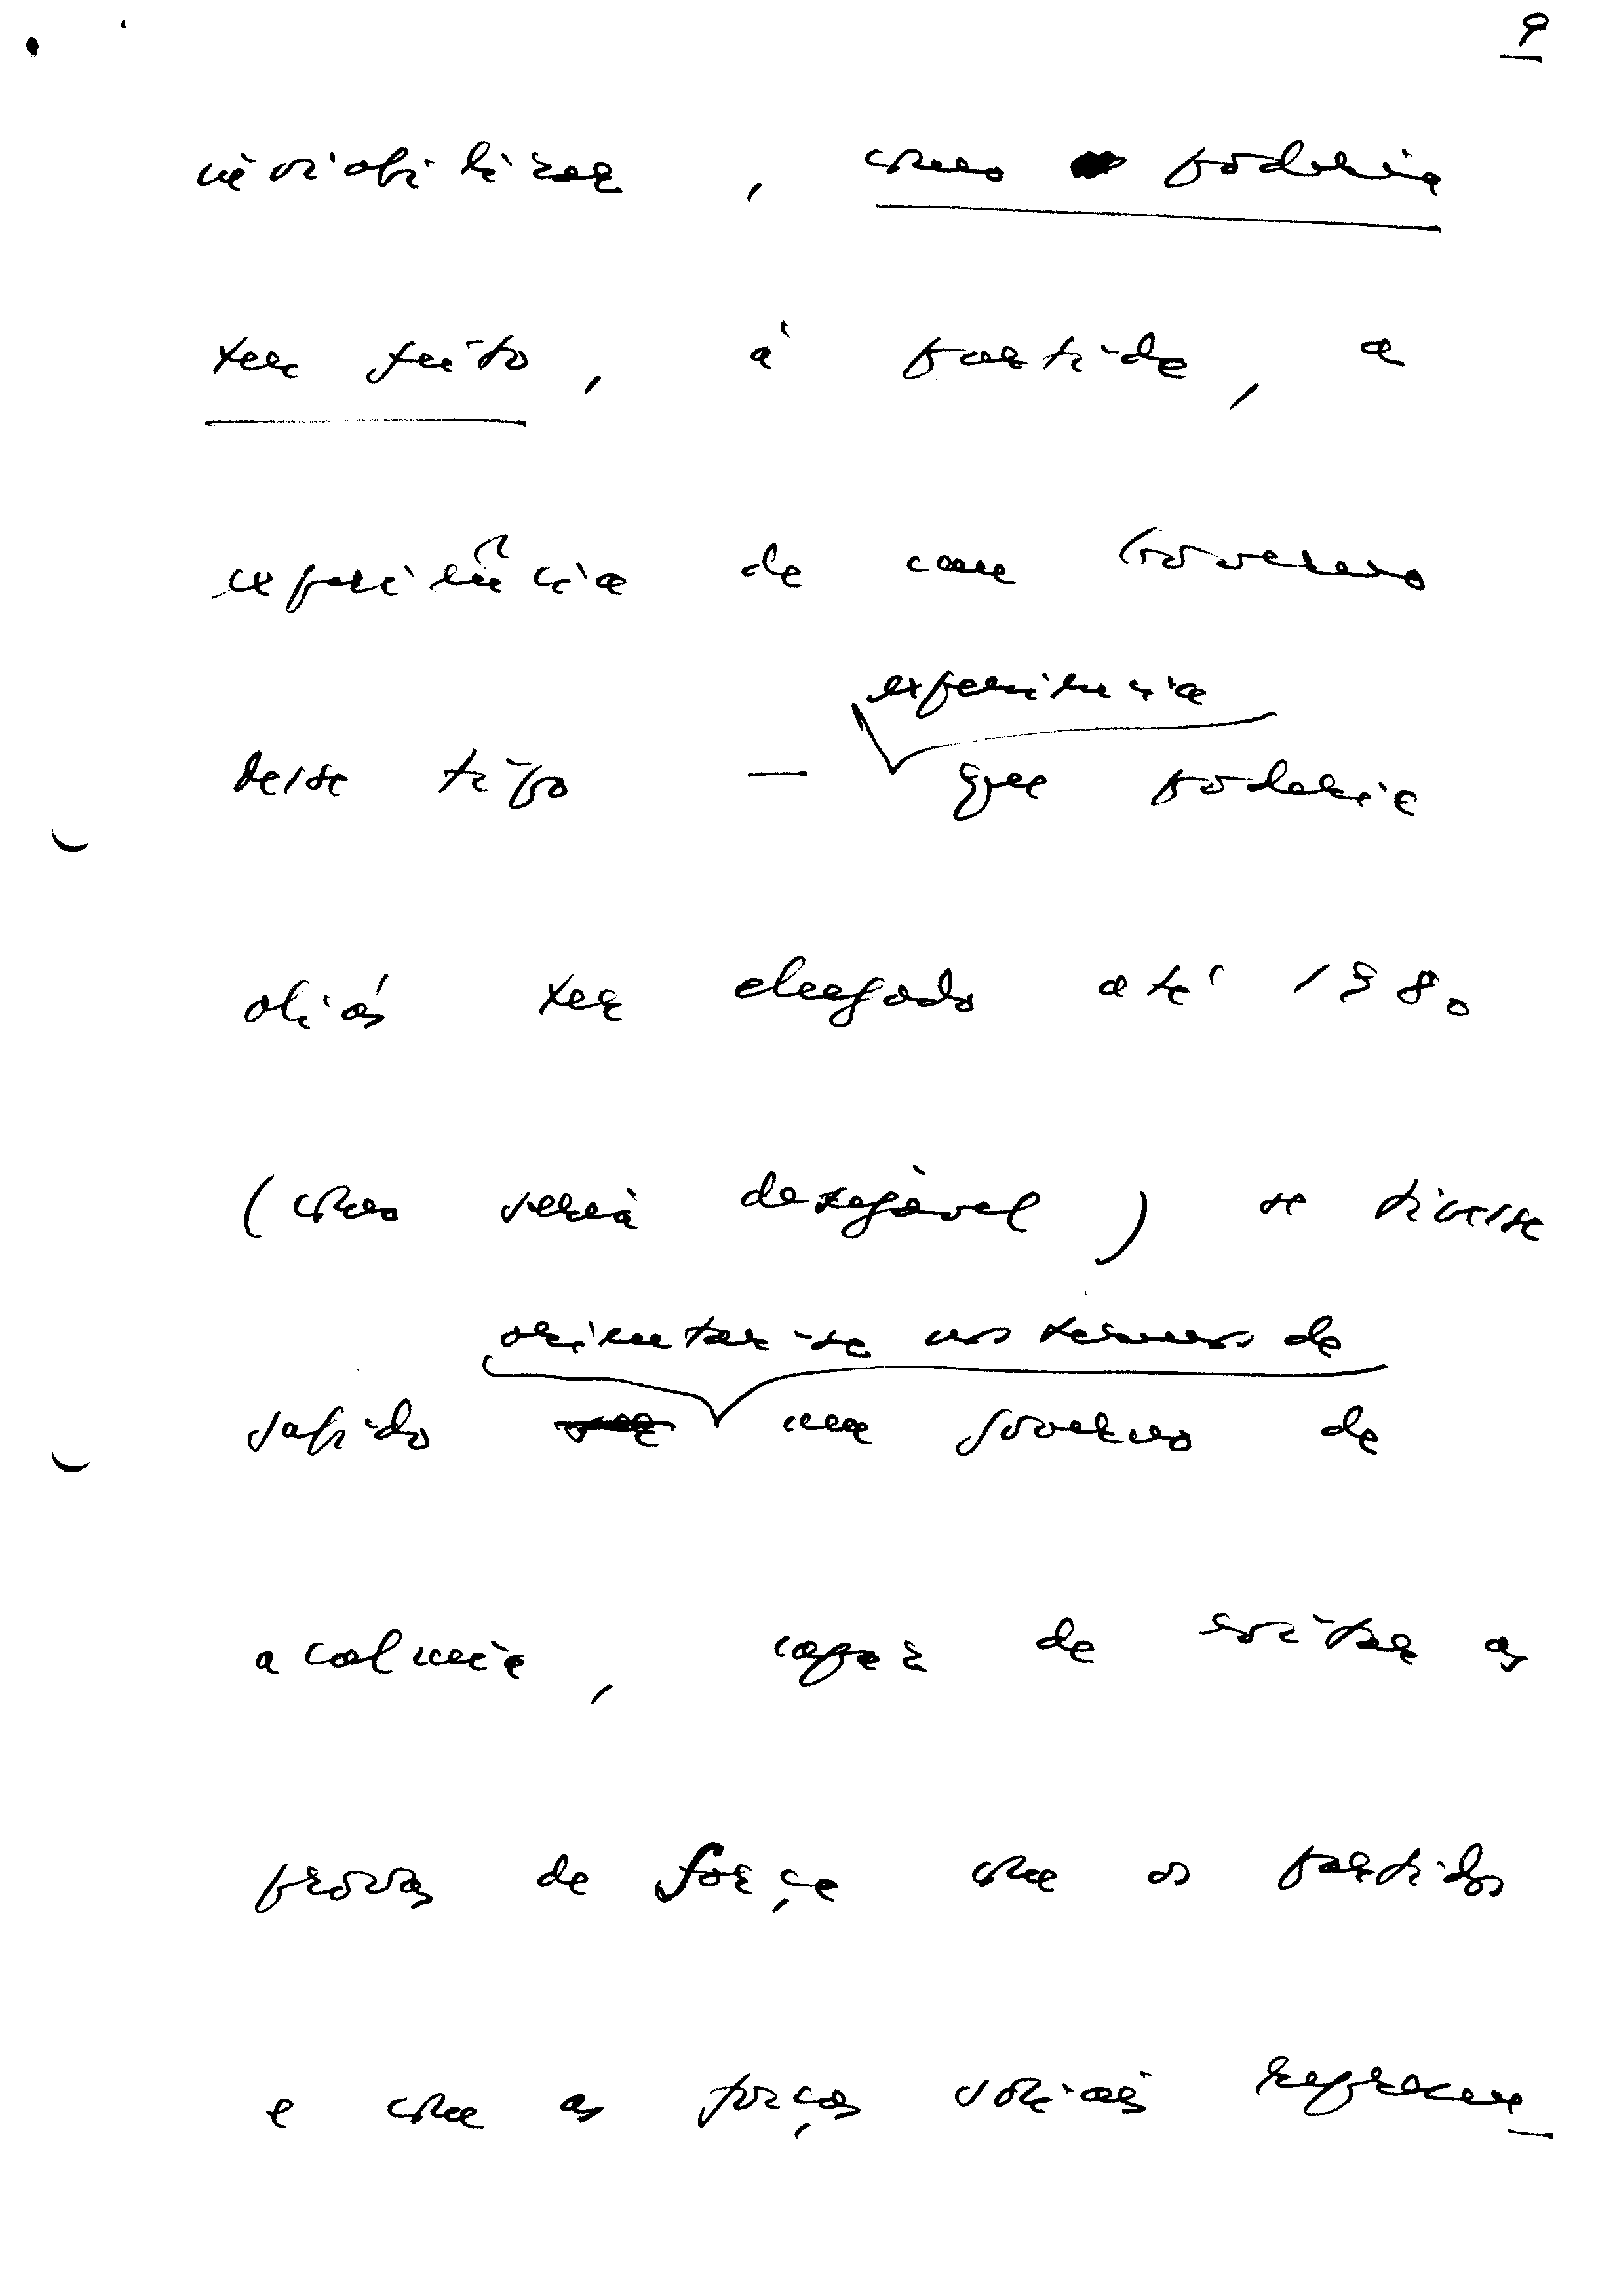 9
inviabilizar, como poderia
ter feito, à partida, a
experiência de um Governo
experiência
desse tipo — que poderia
aliás ter chegado até 1980
(como seria desejável) se tivesse
orientar-se nos termos de
sabido um governo de
acalmia, capaz de evitar as
provas de força com os partidos
e com as forças sociais represen_